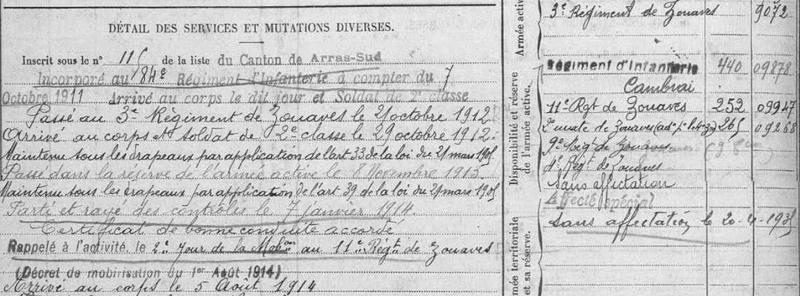 DÉTAIL DES SERVICES ET MUTATIONS DIVERSES.
Inscrit sous le n° 115 de la liste du Canton de Arras-Sud
Incorporé au 84e Régiment d'Infanterie à compter du 7
Octobre 1911 Arrivé au corps le dit jour et Soldat de 2e classe
Passé au 3e Régiment de Zouaves le 21 octobre 1912.
Arrivé au corps et soldat de 2e classe le 29 octobre 1912.
Maintenu sous les drapeaux par application de l'art 33 de la loi du 21 mars 1905
Passé dans la réserve de l'armée active le 8 Novembre 1913.
Maintenu sous les drapeaux par application de l'art 39 de la loi du 21 mars 1905
Parti et rayé des contrôles le 7 janvier 1914.
Certificat de bonne conduite accordé
Rappelé à l'activité, le 2e Jour de la Mobon au 11e Régt. de Zouaves
(Décret de mobilisation du 1er Août 1914)
Arrivé au corps le 5 Août 1914
Armée active
3e Régiment de Zouaves 9072
Disponibilité et réserve de l'armée active.
Régiment d'Infanterie 440 09878
Cambrai
11e Rgt de Zouaves 252 09947
de Zouaves 265 09268
9e Rég de Zouaves
Régt de Zouaves
Sans affectation
Affecté spécial
Armée territoriale et sa réserve.
sans affectation le 20-4-193